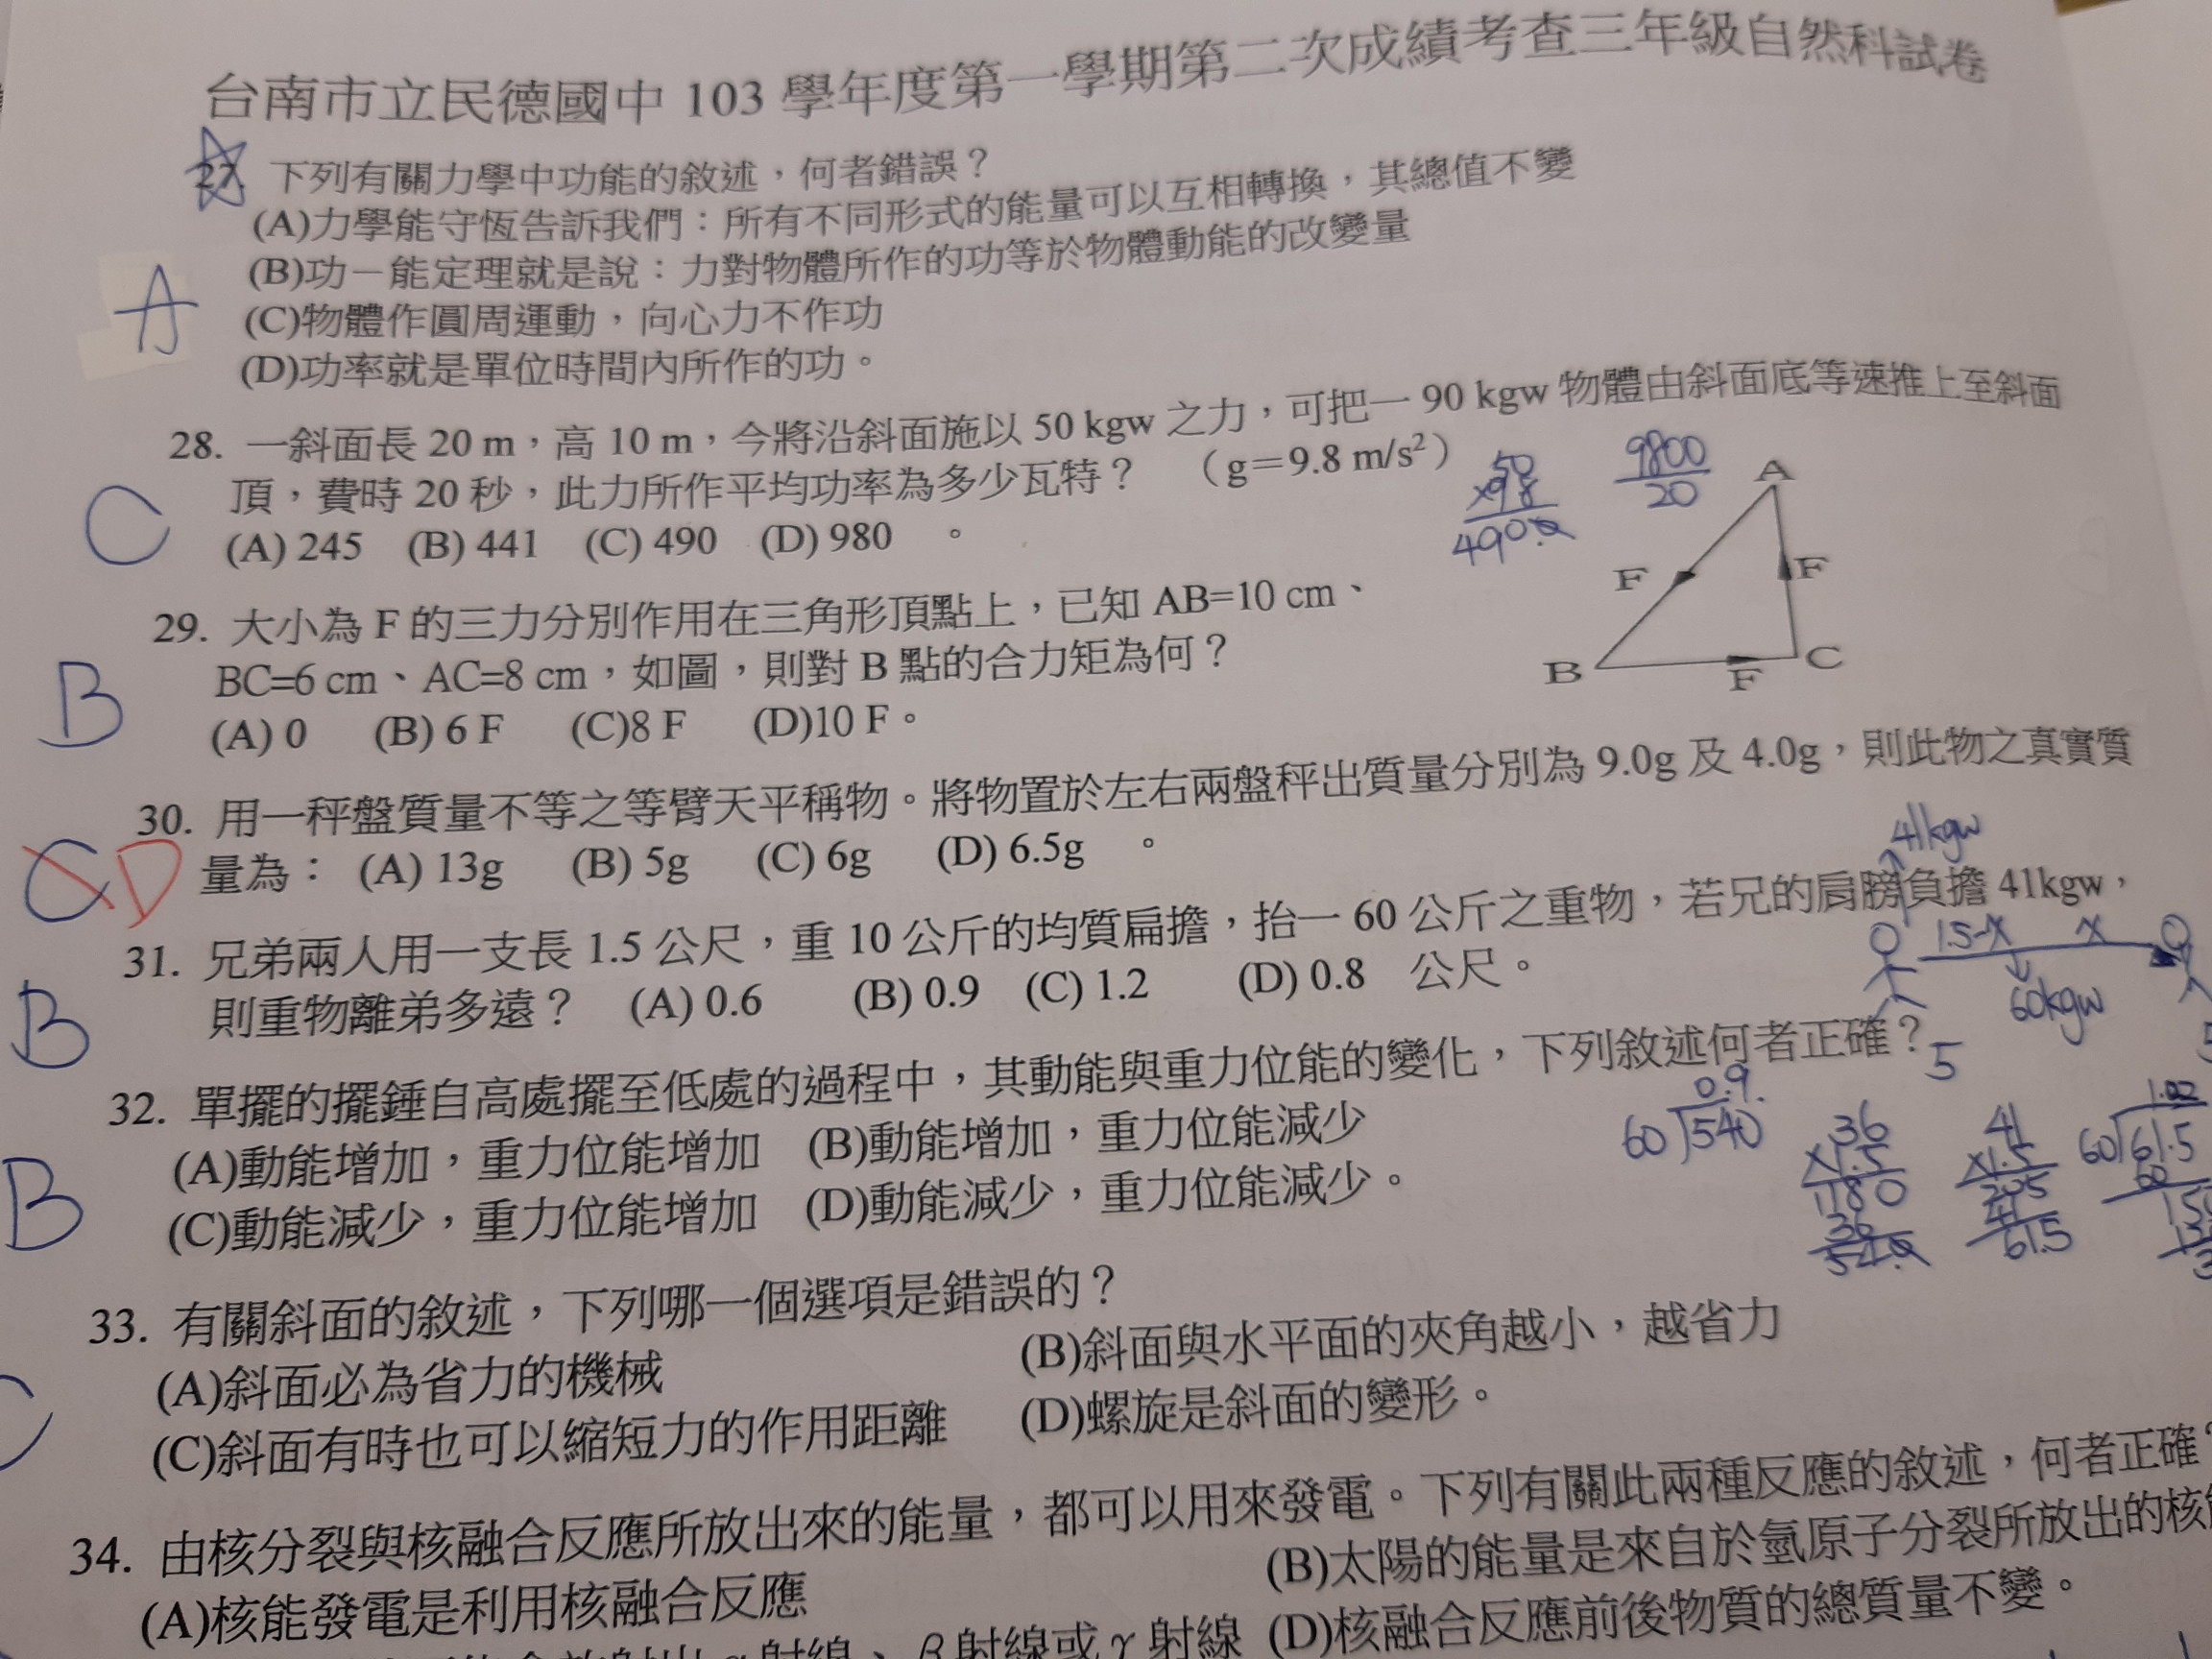 台南市立民德國中 103 學年度第一學期第二次成績考查三年級自然科試卷
27 下列有關力學中功能的敘述，何者錯誤？
(A)力學能守恆告訴我們：所有不同形式的能量可以互相轉換，其總值不變
(B)功－能定理就是說：力對物體所作的功等於物體動能的改變量
A
(C)物體作圓周運動，向心力不作功
(D)功率就是單位時間內所作的功。
28. 一斜面長 20 m，高 10 m，今將沿斜面施以 50 kgw 之力，可把一 90 kgw 物體由斜面底等速推上至斜面
頂，費時 20 秒，此力所作平均功率為多少瓦特？ （g＝9.8 m/s²）
C
(A) 245 (B) 441 (C) 490 (D) 980 。
50
×9.8
490.0
9800
20
A
F F
B F C
29. 大小為 F 的三力分別作用在三角形頂點上，已知 AB=10 cm、
BC=6 cm、AC=8 cm，如圖，則對 B 點的合力矩為何？
B
(A) 0 (B) 6 F (C)8 F (D)10 F。
30. 用一秤盤質量不等之等臂天平稱物。將物置於左右兩盤秤出質量分別為 9.0g 及 4.0g，則此物之真實質
C D
量為： (A) 13g (B) 5g (C) 6g (D) 6.5g 。
41kgw
31. 兄弟兩人用一支長 1.5 公尺，重 10 公斤的均質扁擔，抬一 60 公斤之重物，若兄的肩膀負擔 41kgw，
1.5-x x
則重物離弟多遠？ (A) 0.6 (B) 0.9 (C) 1.2 (D) 0.8 公尺。
B
60kgw
5
32. 單擺的擺錘自高處擺至低處的過程中，其動能與重力位能的變化，下列敘述何者正確？
(A)動能增加，重力位能增加 (B)動能增加，重力位能減少
B
(C)動能減少，重力位能增加 (D)動能減少，重力位能減少。
0.9.
60 540
36
×1.5
180
36
54.0
41
×1.5
205
41
61.5
60 61.5
60
33. 有關斜面的敘述，下列哪一個選項是錯誤的？
(A)斜面必為省力的機械 (B)斜面與水平面的夾角越小，越省力
C
(C)斜面有時也可以縮短力的作用距離 (D)螺旋是斜面的變形。
34. 由核分裂與核融合反應所放出來的能量，都可以用來發電。下列有關此兩種反應的敘述，何者正確？
(A)核能發電是利用核融合反應 (B)太陽的能量是來自於氫原子分裂所放出的核
α 射線、β射線或γ 射線 (D)核融合反應前後物質的總質量不變。